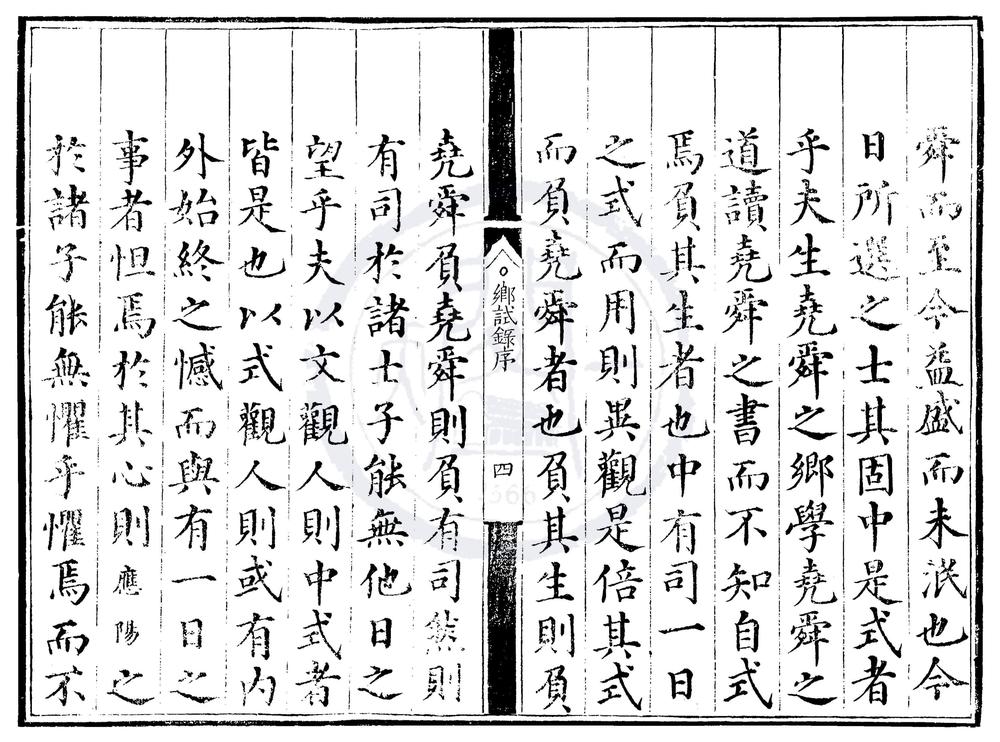 舜而至今益盛而未泯也今
日所選之士其固中是式者
乎夫生堯舜之鄉學堯舜之
道讀堯舜之書而不知自式
焉負其生者也中有司一日
之式而用則異觀是倍其式
而負堯舜者也負其生則負
鄉試錄序
四
堯舜負堯舜則負有司然則
有司於諸士子能無他日之
望乎夫以文觀人則中式者
皆是也以式觀人則或有內
外始終之憾而與有一日之
事者怛焉於其心則應陽之
於諸子能無懼乎懼焉而不